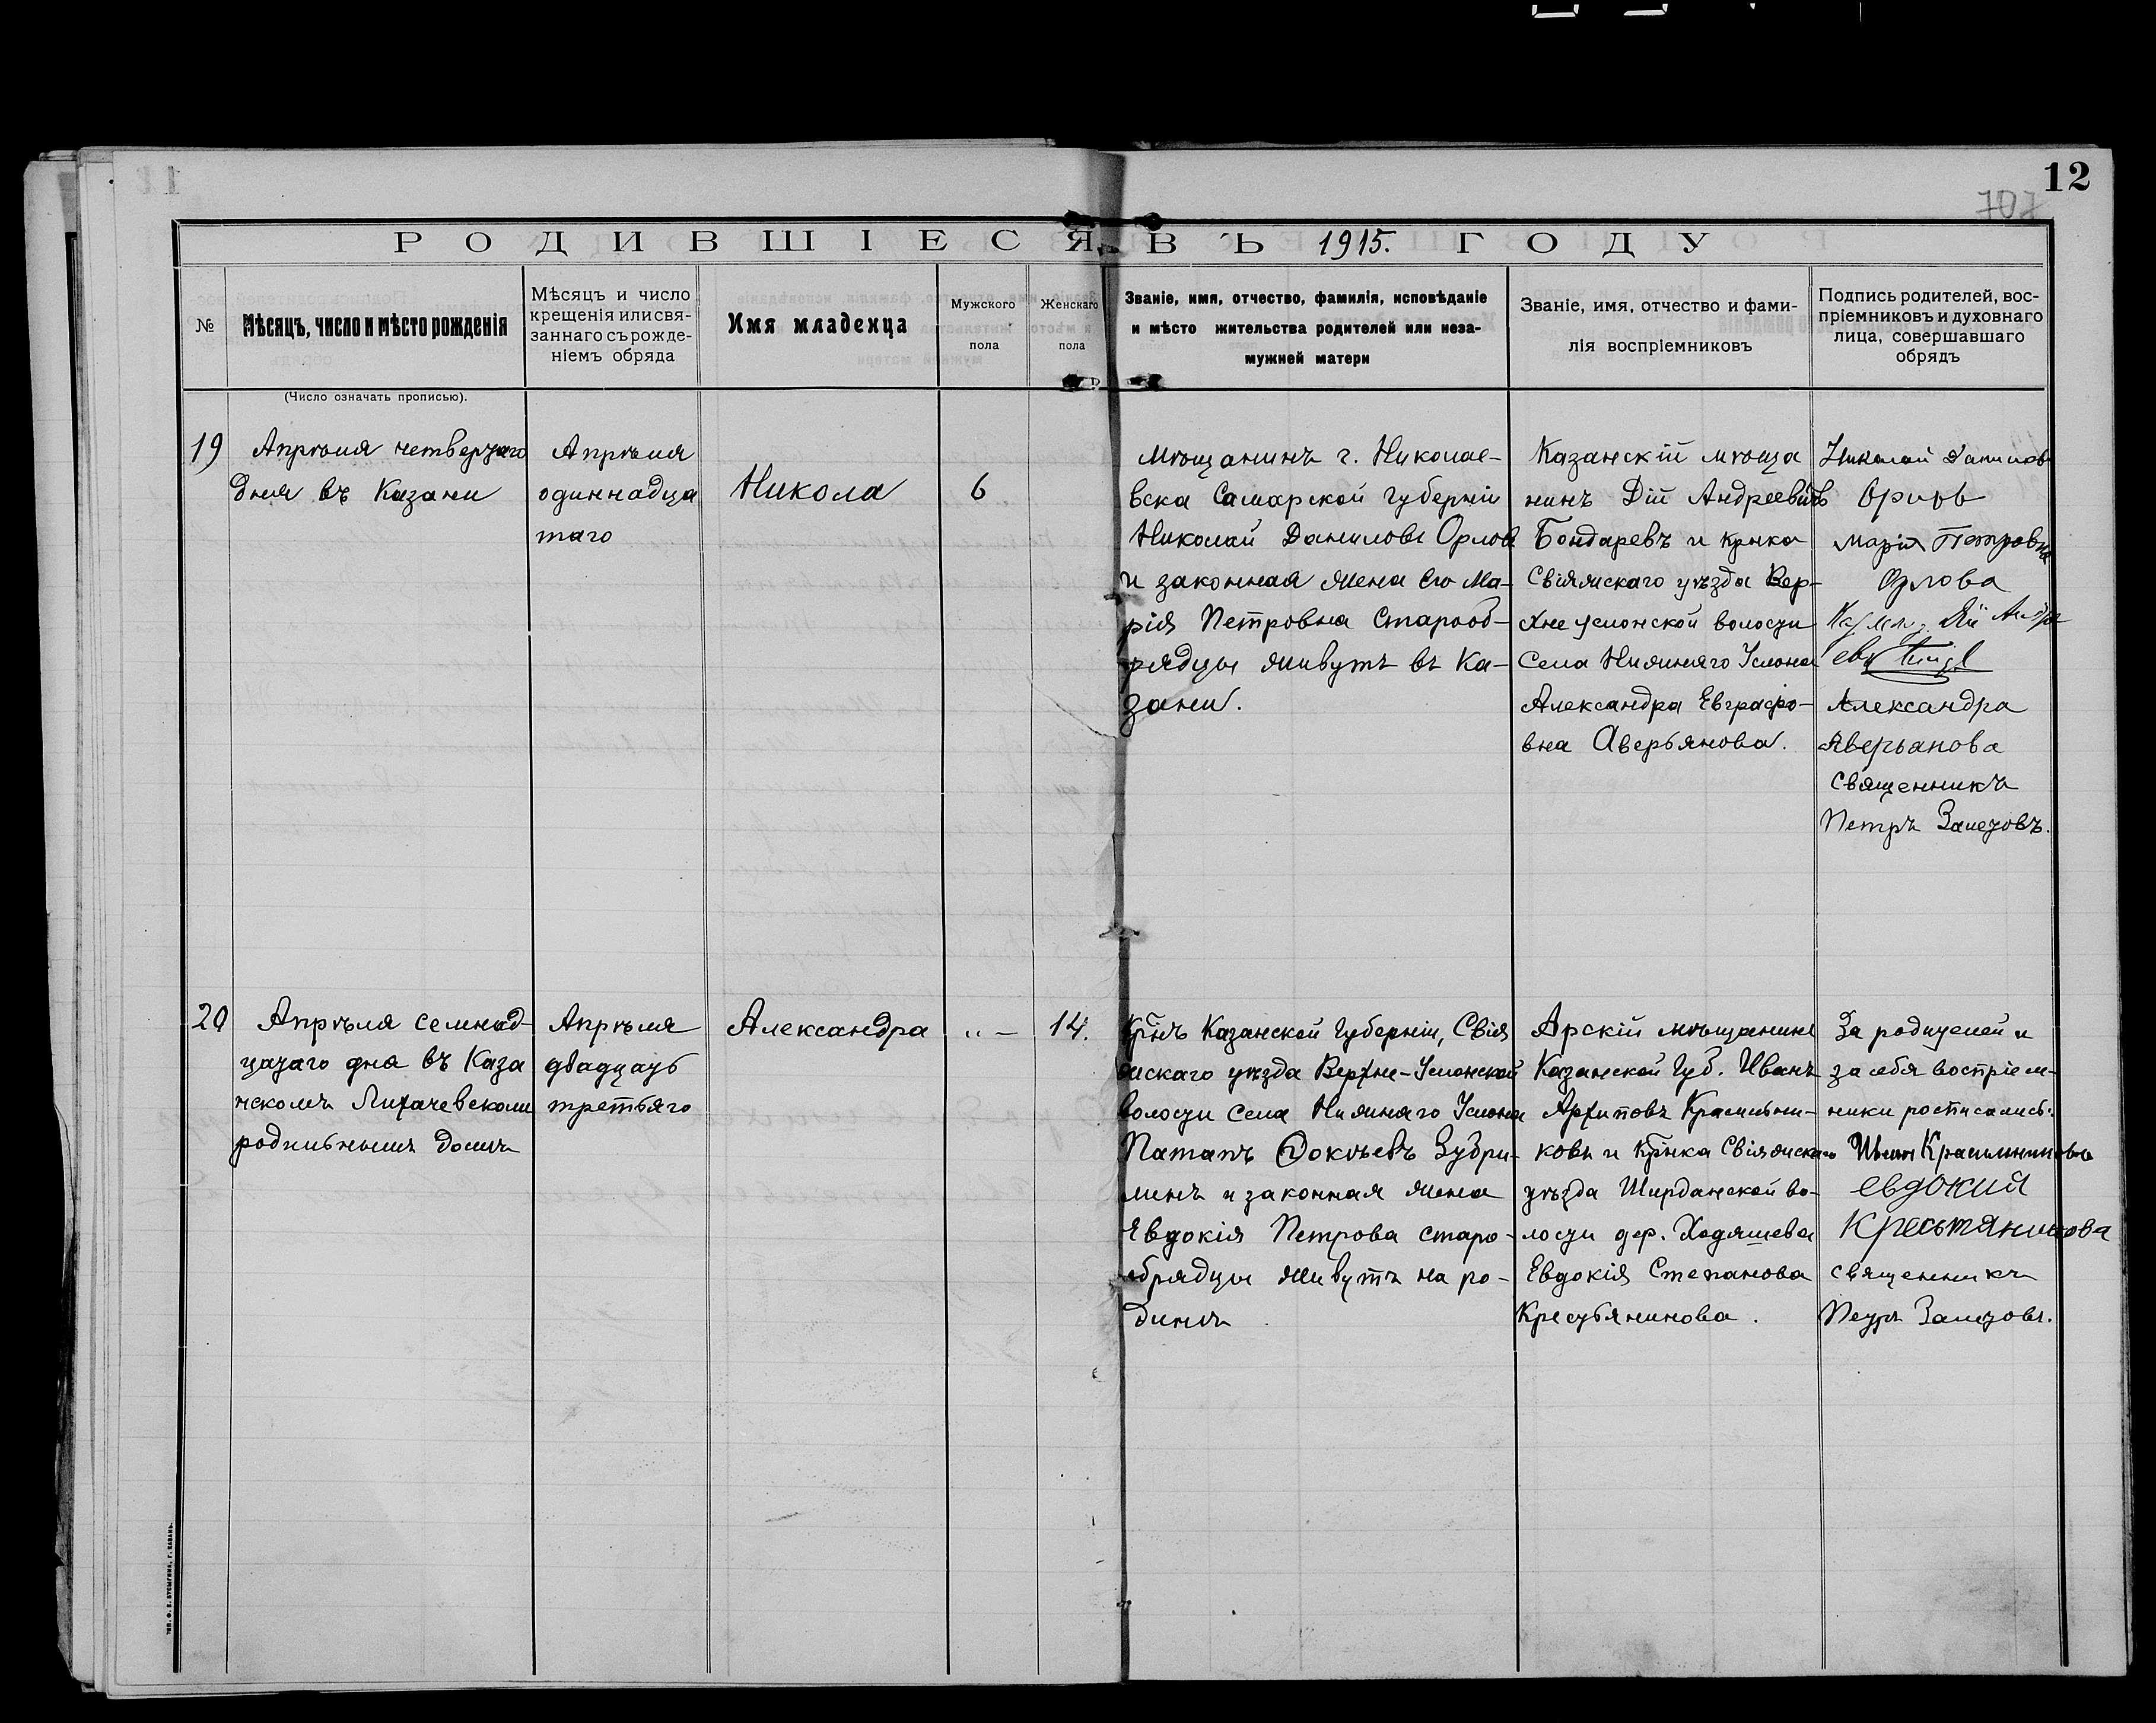 12
707
РОДИВШІЕСЯ ВЪ 1915. ГОДУ
№
Мѣсяцъ, число и мѣсто рожденія
Мѣсяцъ и число
крещенія или свя-
заннаго съ рожде-
ніемъ обряда
Имя младенца
Мужского
пола
Женскаго
пола
Званіе, имя, отчество, фамилія, исповѣданіе
и мѣсто жительства родителей или неза-
мужней матери
Званіе, имя, отчество и фами-
лія воспріемниковъ
Подпись родителей, вос-
пріемниковъ и духовнаго
лица, совершавшаго
обрядъ
(Число означать прописью).
19
Апрѣля четвертаго
дня въ Казани
Апрѣля
одиннадца
таго
Никола
6
Мѣщанинъ г. Николае-
вска Самарской губерніи
Николай Даниловъ Орловъ
и законная жена его Ма-
рія Петровна Старооб-
рядцы живутъ въ Ка-
зани.
Казанскій мѣща
нинъ Дій Андреевичъ
Бондаревъ и крнка
Свіяжскаго уѣзда Вер-
хнеуслонской волости
Села Нижняго Услона
Александра Евграфо-
вна Аверьянова.
Николай Данилов
Орловъ
Марія Петровна
Орлова
Дій Андре
Александра
Аверьанова
Священникъ
Петръ Залетовъ.
20
Апрѣля семнад-
цатаго дна въ Каза
нскомъ Лихачевскомъ
родильномъ домѣ
Апрѣля
двадцать
третьяго
Александра
„ —
14.
Кр̃нъ Казанской Губерніи, Свія
жскаго уѣзда Верхне-Услонской
волости села Нижняго Услона
Патапъ Фокѣевъ Зубри-
линъ и законная жена
Евдокія Петрова старо-
обрядцы живутъ на ро-
динѣ
Арскій мѣщанинъ
Казанской Губ. Иванъ
Архиповъ Красильни-
ковъ и кр̃нка Свіяжскаго
уѣзда Ширданской во-
лости дер. Ходяшева
Евдокія Степанова
Крестьянинова.
За родителей и
за себя воспріем-
ники росписались:
Иванъ Красильниковъ
евдокий
Крестьянинова
священникъ
Петръ Залетовъ.